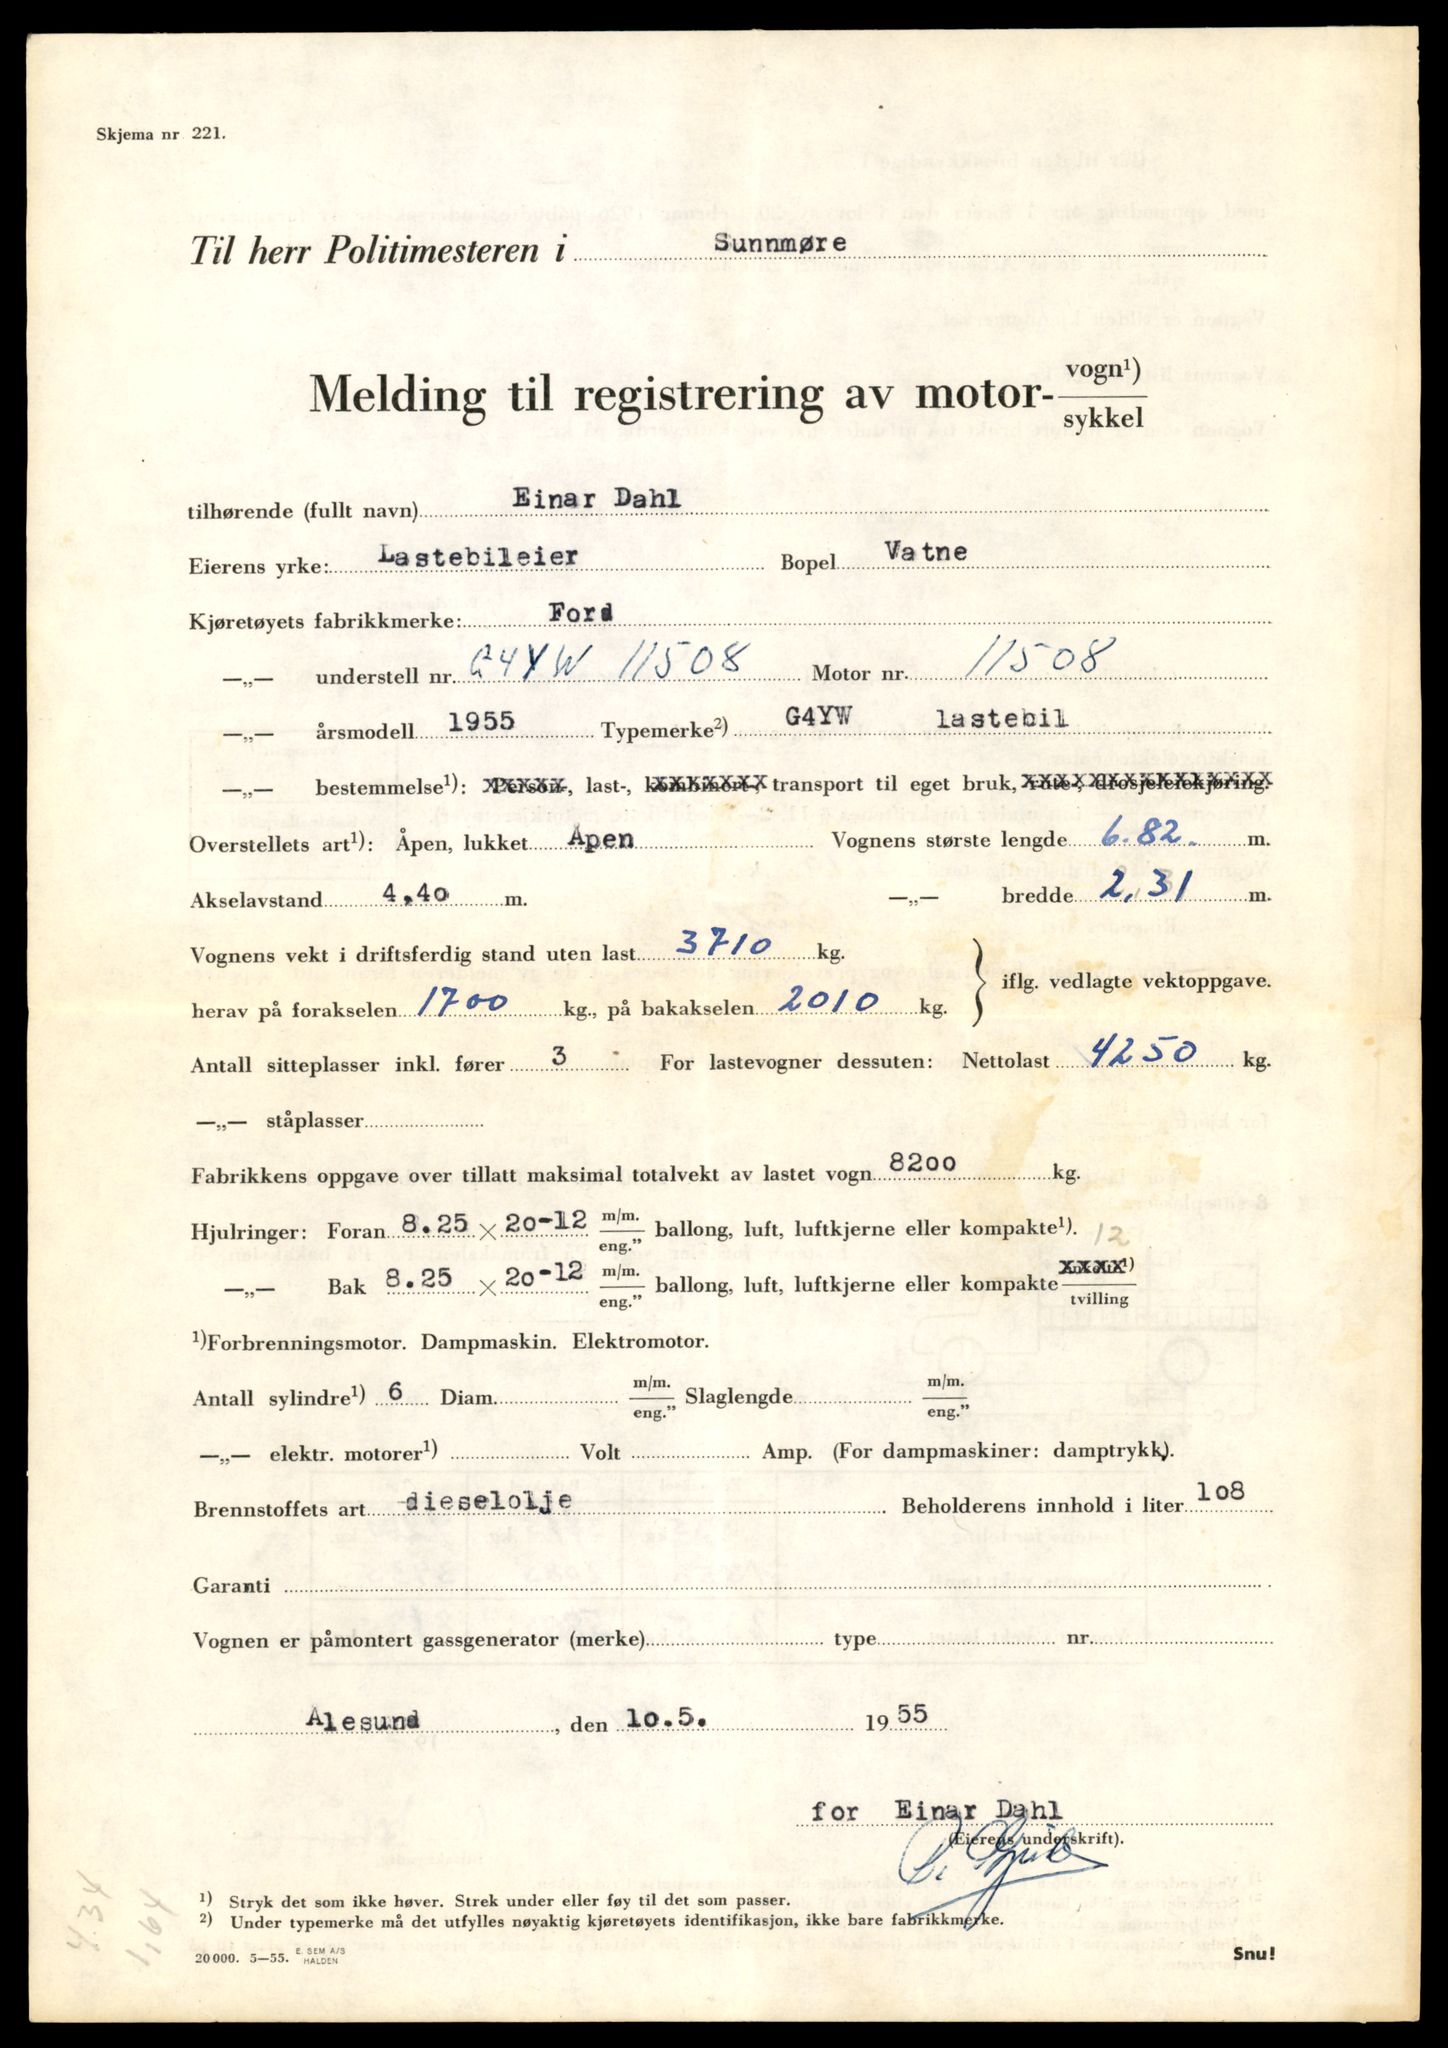 Skjema nr 221.
Til herr Politimesteren i Sunnmøre
Melding til registrering av motor- vogn¹) sykkel
tilhørende (fullt navn) Einar Dahl
Eierens yrke: Lastebileier Bopel Vatne
Kjøretøyets fabrikkmerke: Ford
—„— understell nr. G4YW 11508 Motor nr. 11508
—„— årsmodell 1955 Typemerke²) G4YW lastebil
—„— bestemmelse¹): Person-, last-, kombinert-, transport til eget bruk, rute-, drosjeleiekjøring.
Overstellets art¹): Åpen, lukket Åpen Vognens største lengde 6.82. m.
Akselavstand 4,40 m. —„— bredde 2,31 m.
Vognens vekt i driftsferdig stand uten last 3710 kg.
herav på forakselen 1700 kg., på bakakselen 2010 kg. } iflg. vedlagte vektoppgave.
Antall sitteplasser inkl. fører 3 For lastevogner dessuten: Nettolast 4250 kg.
—„— ståplasser
Fabrikkens oppgave over tillatt maksimal totalvekt av lastet vogn 8200 kg.
Hjulringer: Foran 8.25 × 20-12 m/m. eng.” ballong, luft, luftkjerne eller kompakte¹). 12
—„— Bak 8.25 × 20-12 m/m. eng.” ballong, luft, luftkjerne eller kompakte ¹) tvilling
¹)Forbrenningsmotor. Dampmaskin. Elektromotor.
Antall sylindre¹) 6 Diam. m/m. eng.” Slaglengde m/m. eng.”
—„— elektr. motorer¹) Volt Amp. (For dampmaskiner: damptrykk).
Brennstoffets art dieselolje Beholderens innhold i liter 108
Garanti
Vognen er påmontert gassgenerator (merke) type nr.
Ålesund, den 10.5. 1955
for Einar Dahl
(Eierens underskrift).
¹) Stryk det som ikke høver. Strek under eller føy til det som passer.
²) Under typemerke må det utfylles nøyaktig kjøretøyets identifikasjon, ikke bare fabrikkmerke.
20 000. 5—55. E. SEM A/S HALDEN
Snu!
4.34
1,64